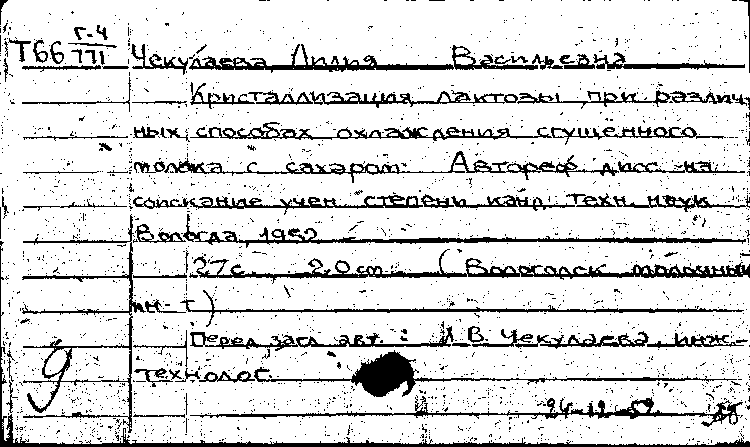 Т66 Г-4/771 Чекулаева Лилия Васильевна
Кристаллизация лактозы при различ-
ных способах охлаждения сгущенного
молока с сахаром: Автореф дисс на
соискание учен степени канд. техн. наук
Вологда, 1952
27 с. 20 см (Вологодск молочный
ин-т)
Перед загл авт.: Л В. Чекулаева, инж-
технолог.
9
24-12-52